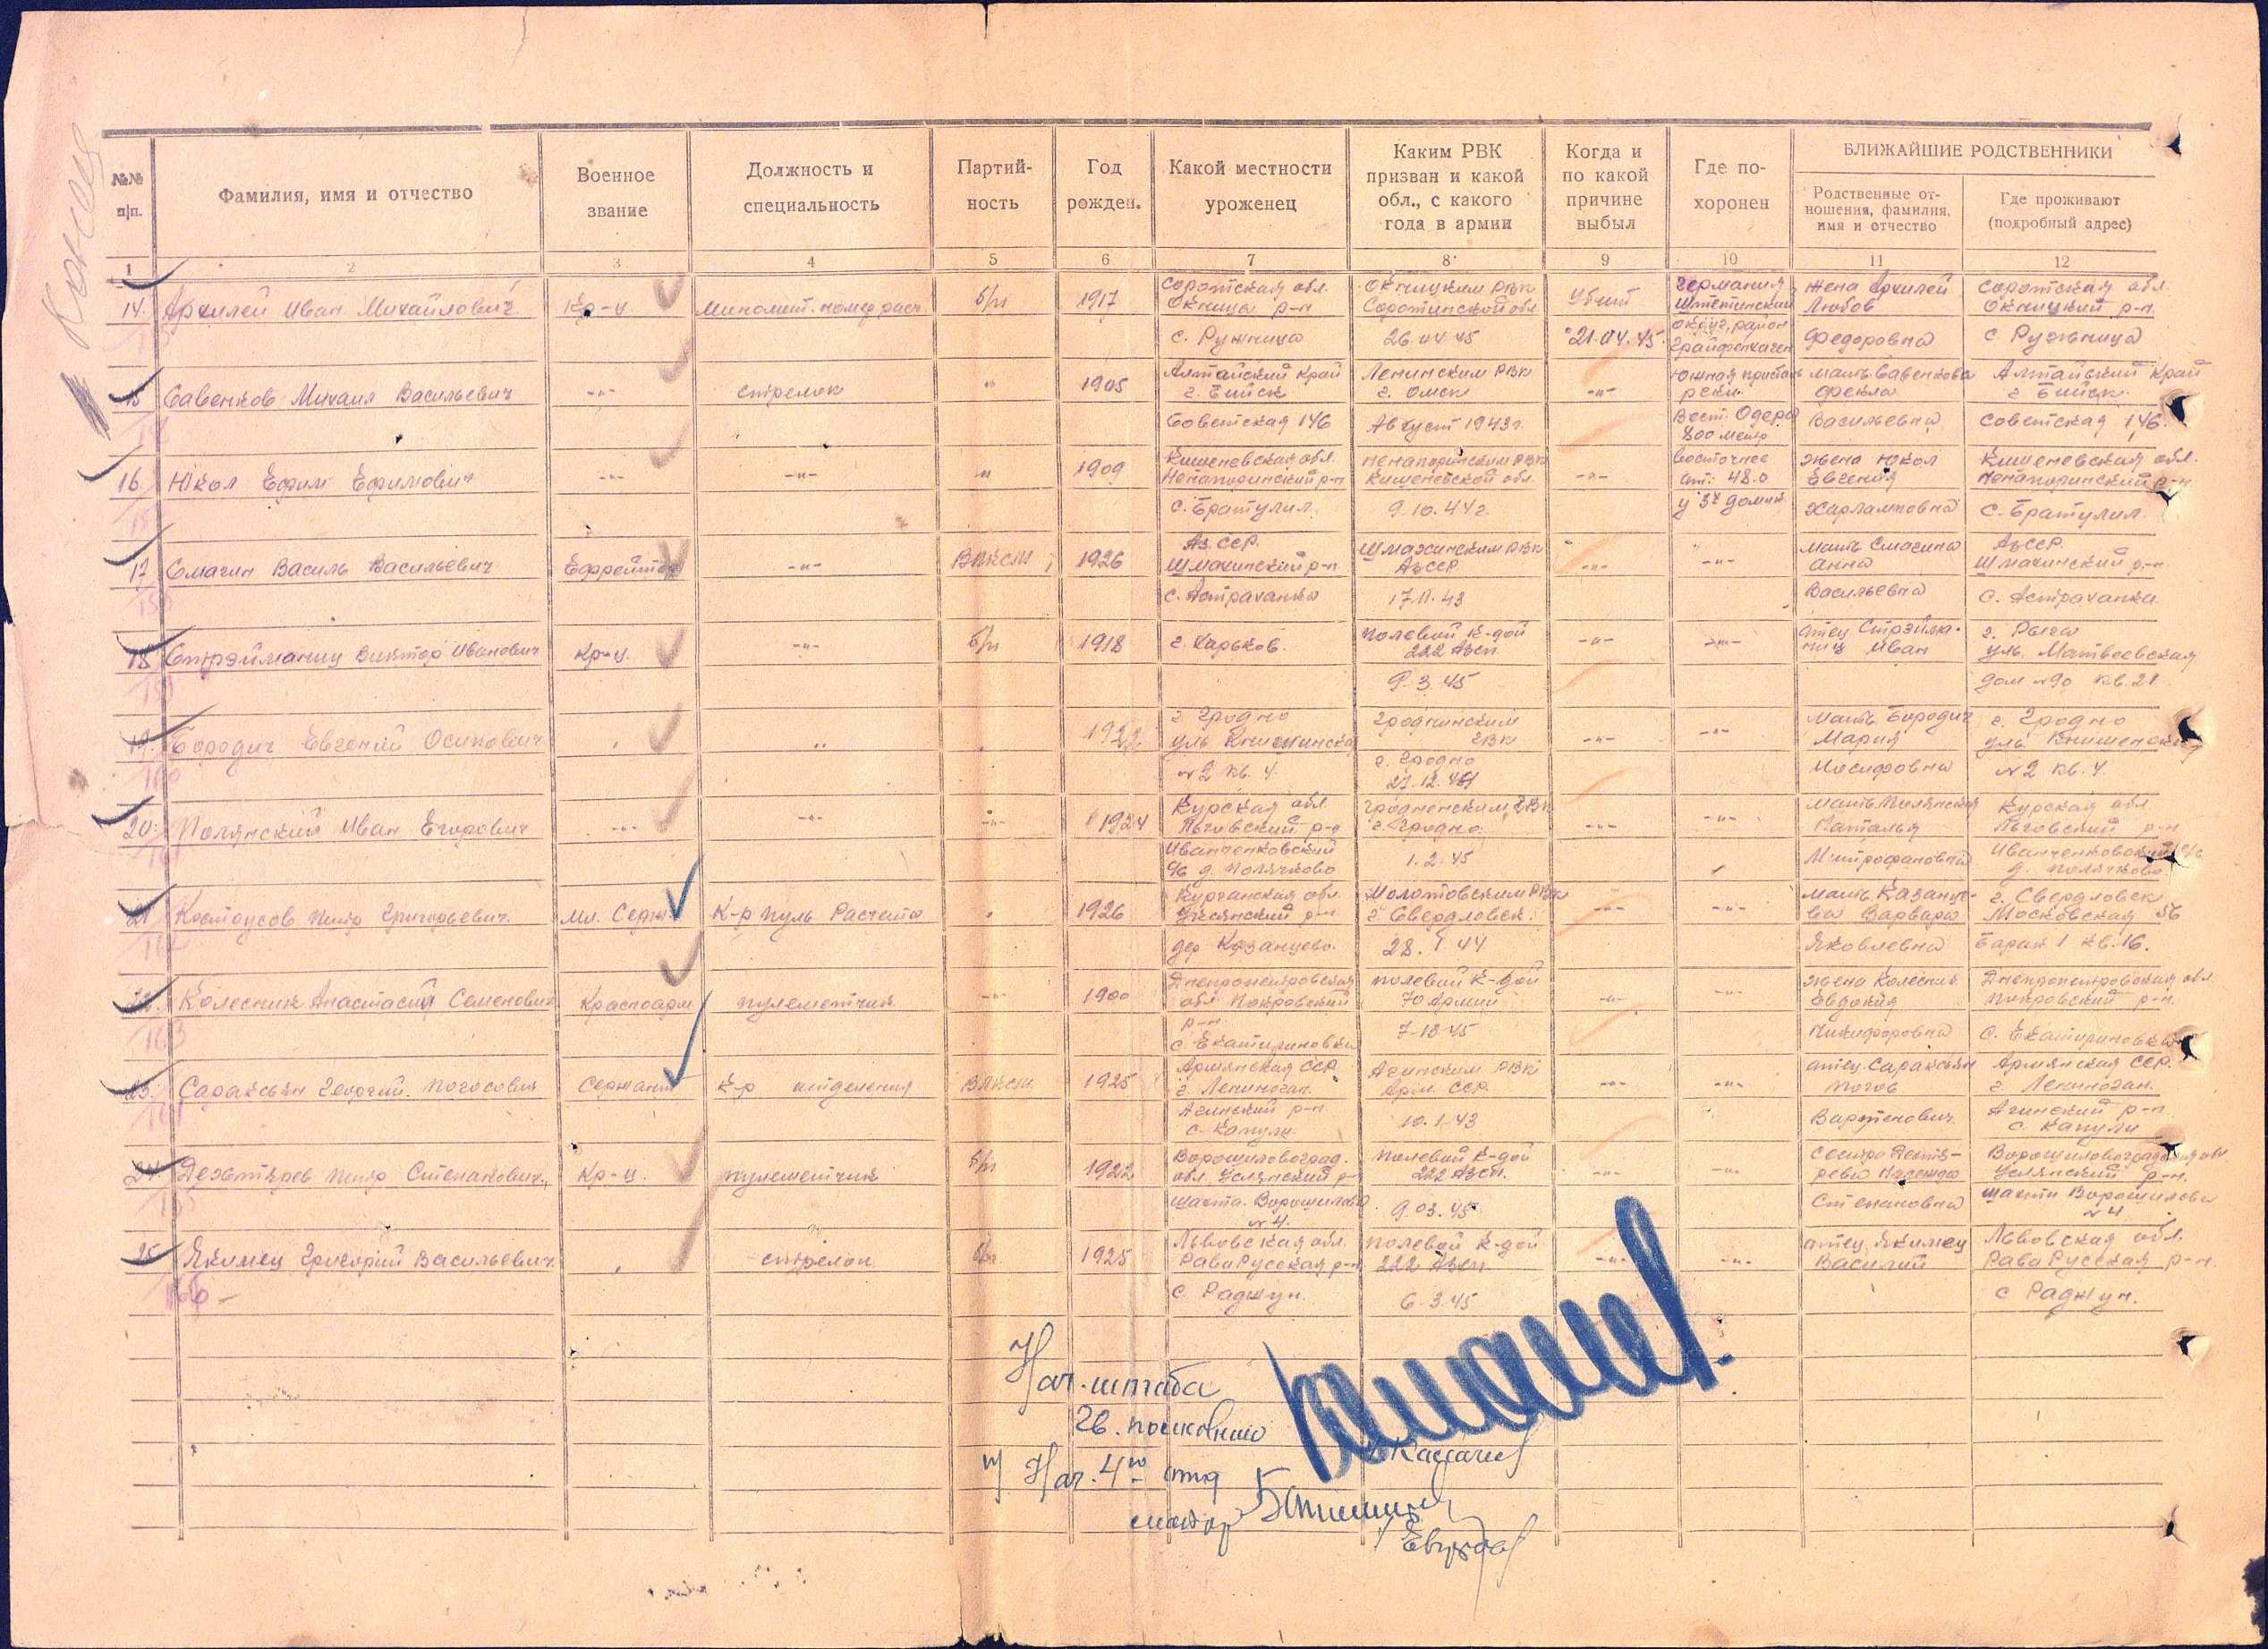 Копия
№№ п|п.
Фамилия, имя и отчество
Военное звание
Должность и специальность
Партий-ность
Год рожден.
Какой местности уроженец
Каким РВК призван и какой обл., с какого года в армии
Когда и по какой причине выбыл
Где по-хоронен
БЛИЖАЙШИЕ РОДСТВЕННИКИ
Родственные от-ношения, фамилия, имя и отчество
Где проживают (подробный адрес)
1 2 3 4 5 6 7 8 9 10 11 12
14. Архилей Иван Михайлович Кр-ц Миномет. номер расч. б/п 1917 Соротская обл. Окница р-н Окницким РВК Соротинской обл Убит Германия Штетинский Жена Архилей Любов Соротская обл. Окницкий р-н.
с. Ружница 26.04.45 21.04.45. округ, район Грайфенхаген Федоровна с Ружница
15 Савенков Михаил Васильевич -"- стрелок " 1905 Алтайский край г. Бийск Ленинским РВК г. Омск -"- Южная пристань реки Мать Савенкова Фекла Алтайский край г Бийск
Советская 146 Август 1943г. Вест. Одера 800 метр Васильевна Советская 146.
16. Юкол Ефим Ефимович -"- -"- -"- 1909 Кишеневская обл. р-н РВК Кишеневской обл. -"- восточнее отм. 48.0 жена Юкол Евгения Кишеневская обл. р-н
с. Братулил 9.10.44г. у домик Харламповна с. Братулил.
17 Смагин Василь Васильевич Ефрейтор -"- ВЛКСМ 1926 Аз.ССР. Шмахинский р-н Шмахинским РВК АзССР -"- -"- Мать Смагина Анна АзССР. Шмахинский р-н
с. Астраханка 17.11.43 Васильевна с. Астраханка
18 Стрэйманиц Виктор Иванович Кр-ц. -"- б/п 1918 г. Харьков. Полевой к-дой 222 Азсп. -"- -"- отец Стрэйма-ниц Иван г. Рига уль. Матвеевская
9.3.45 дом №90 кв. 21
19. Бородич Евгений Осипович " " " г Гродно уль №2 кв. 4. Гроднинским ГВК г. Гродно -"- -"- Мать Бородич Мария г. Гродно уль.
Иосифовна №2 кв. 4.
20. Полянский Иван Егорович -"- -"- -"- 1924 Курская обл Льговский р-н Гродненским ГВК г. Гродно. -"- -"- Мать Полянская Наталья Курская обл Льговский р-н
Иванченковский с/с д Полячково 1.2.45 Митрофановна Иванченковский с/с д. Полячково.
21 Костоусов Петр Григорьевич. Мл. Серж К-р пуль Расчета " 1926 Курганская обл. р-н Молотовским РВК г Свердловск. -"- -"- Мать Казанце-ва Варвара г. Свердловск Московская 56
дер Казанцево. 28.I.44 Яковлевна Барак 1 кв. 16.
22. Колесник Анастасий Семенович Красноарм пулеметчик -"- 1900 Днепропетровская обл Покровский р-н с. Екатериновка полевой к-дой 70 Армии -"- -"- жена Колесник Евдокия Днепропетровская обл. Покровский р-н.
Никифоровна с. Екатериновка
23. Сараксьян Георгий. Погосович Сержант К-р отделения ВЛКСМ 1925 Армянская ССР г Ленинокан. Агинским РВК Арм. ССР. -"- -"- отец. Сараксьян Погос Армянская ССР. г. Ленинокан.
Агинский р-н с. Капули 10.1.43 Вартенович. Агинский р-н с. Капули
24. Дехтярев Петр Степанович. Кр-ц. пулеметчик б/п 1922 Ворошиловоград. обл. р-н полевой к-дой 222 Азсп. -"- -"- сестра Дехтя-рева Надежда Ворошиловоградская обл р-н.
шахта. Ворошилова №4. 9.03.45. Степановна шахта Ворошилова №4
25 Якимец Григорий Васильевич. " стрелок б/п 1925 Львовская обл. Рава Русская р-н полевой к-дой 222 Азсп -"- -"- отец Якимец Василий Львовская обл. Рава Русская р-н.
166 с. Раджун. 6.3.45 с Раджун.
Нач. штаба
гв. полковник
Нач. 4го отд